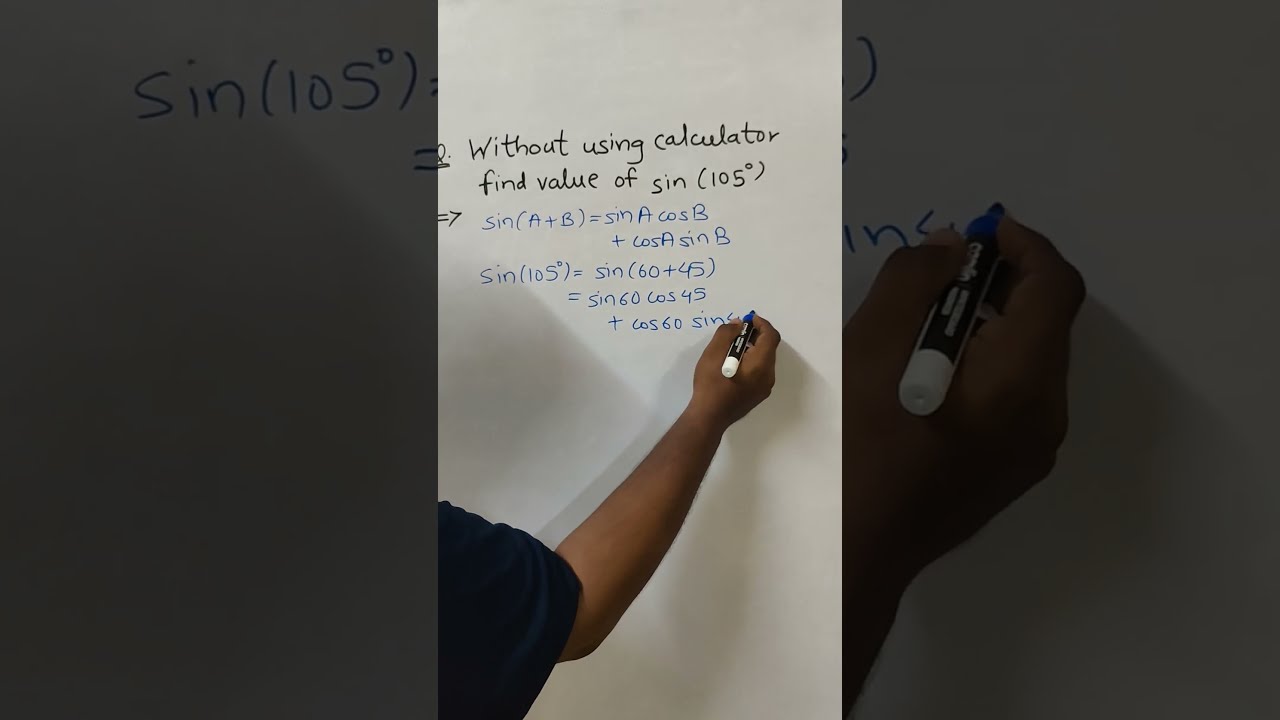 Q. Without using calculator
find value of sin (105°)
=> sin(A+B) = sinA cosB
+ cosA sinB
sin(105°) = sin(60+45)
= sin60 cos45
+ cos60